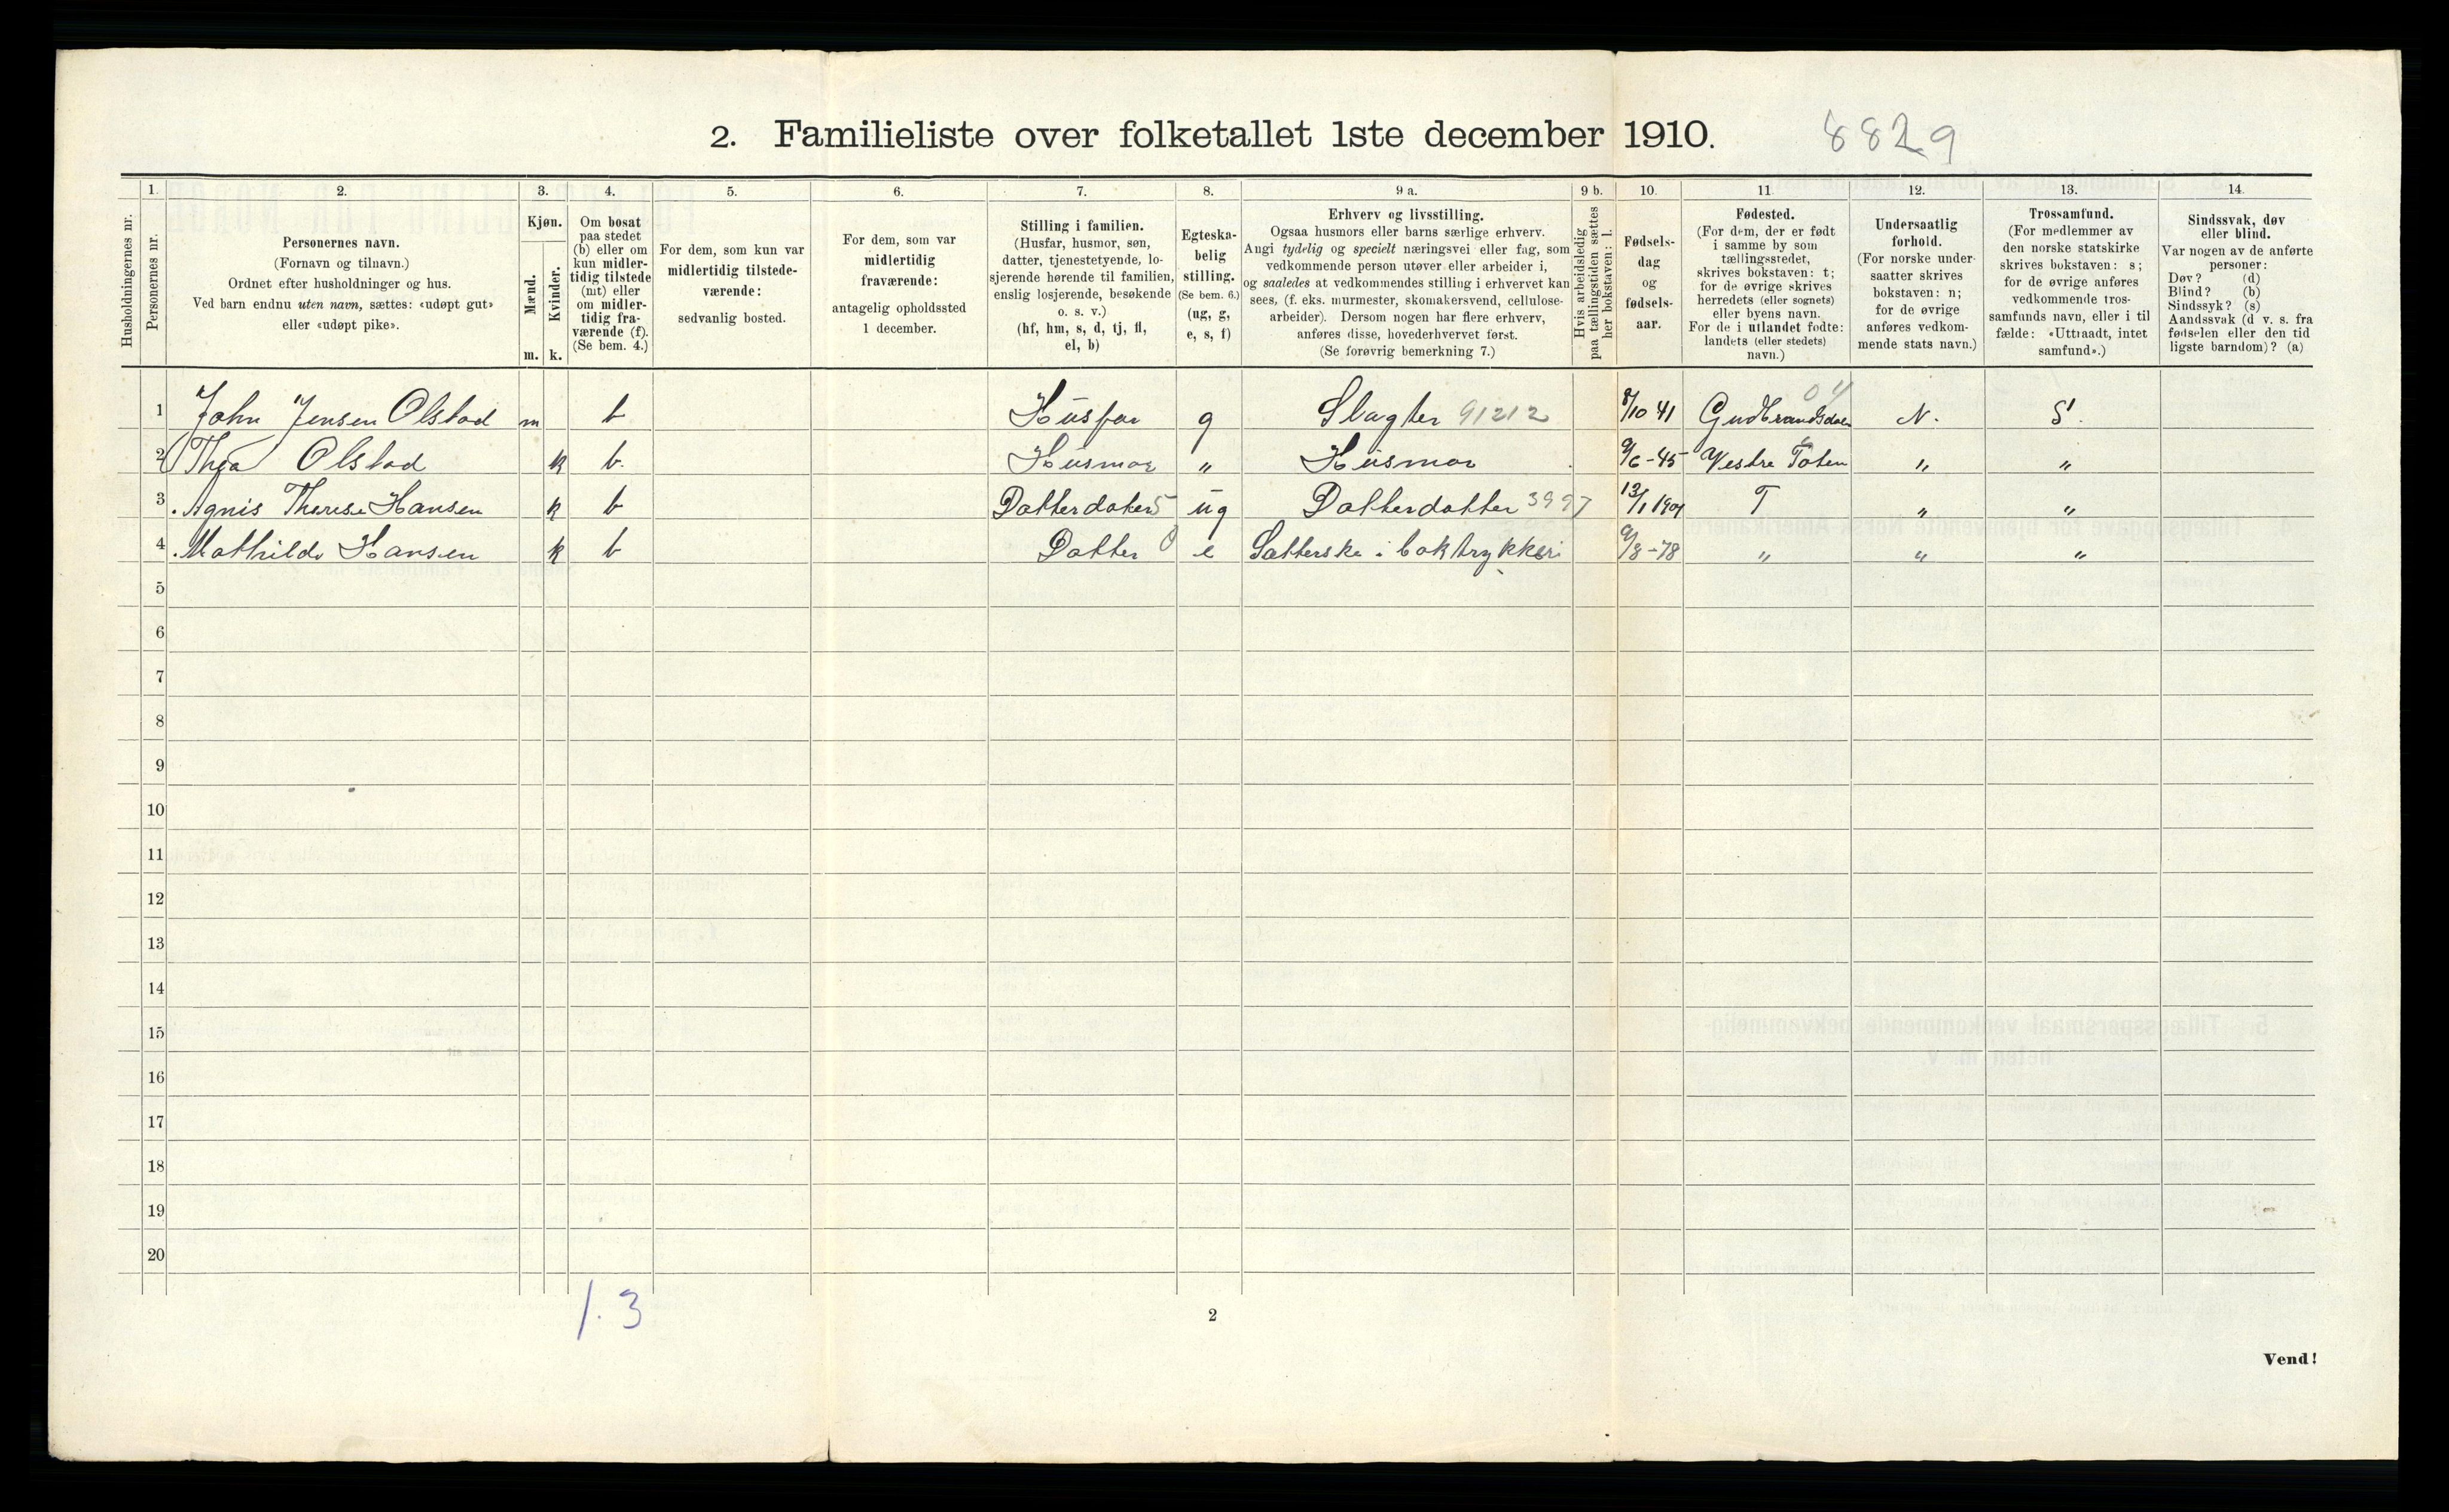 2. Familieliste over folketallet 1ste december 1910. 8829
Husholdningernes nr.
1. Personernes nr.
2. Personernes navn.
(Fornavn og tilnavn.)
Ordnet efter husholdninger og hus.
Ved barn endnu uten navn, sættes: «udøpt gut»
eller «udøpt pike».
3. Kjøn.
Mænd. m.
Kvinder. k.
4. Om bosat
paa stedet
(b) eller om
kun midler-
tidig tilstede
(mt) eller
om midler-
tidig fra-
værende (f).
(Se bem. 4.)
5. For dem, som kun var
midlertidig tilstede-
værende:
sedvanlig bosted.
6. For dem, som var
midlertidig
fraværende:
antagelig opholdssted
1 december.
7. Stilling i familien.
(Husfar, husmor, søn,
datter, tjenestetyende, lo-
sjerende hørende til familien,
enslig losjerende, besøkende
o. s. v.)
(hf, hm, s, d, tj, fl,
el, b)
8. Egteska-
belig
stilling.
(Se bem. 6.)
(ug, g,
e, s, f)
9 a. Erhverv og livsstilling.
Ogsaa husmors eller barns særlige erhverv.
Angi tydelig og specielt næringsvei eller fag, som
vedkommende person utøver eller arbeider i,
og saaledes at vedkommendes stilling i erhvervet kan
sees, (f. eks. murmester, skomakersvend, cellulose-
arbeider). Dersom nogen har flere erhverv,
anføres disse, hovederhvervet først.
(Se forøvrig bemerkning 7.)
9 b. Hvis arbeidsledig
paa tællingstiden sættes
her bokstaven: l.
10. Fødsels-
dag
og
fødsels-
aar.
11. Fødested.
(For dem, der er født
i samme by som
tællingsstedet,
skrives bokstaven: t;
for de øvrige skrives
herredets (eller sognets)
eller byens navn.
For de i utlandet fødte:
landets (eller stedets)
navn.)
12. Undersaatlig
forhold.
(For norske under-
saatter skrives
bokstaven: n;
for de øvrige
anføres vedkom-
mende stats navn.)
13. Trossamfund.
(For medlemmer av
den norske statskirke
skrives bokstaven: s;
for de øvrige anføres
vedkommende tros-
samfunds navn, eller i til
fælde: «Uttraadt, intet
samfund».)
14. Sindssvak, døv
eller blind.
Var nogen av de anførte
personer:
Døv? (d)
Blind? (b)
Sindssyk? (s)
Aandssvak (d v. s. fra
fødselen eller den tid
ligste barndom)? (a)
1 John Jensen Olstad m b Husfar g Slagter 91212 8/10 41 Gudbrandsdalen 04 N. S.
2 Thea Olstad k b. Husmor " Husmor 9/6-45 Vestre Toten " "
3 Agnis Therese Hansen k b Datterdater 5 ug Datterdatter 3997 13/1 1901 T " "
4 Mathilde Hansen k b Datter 0 e Sætterske i boktrykkeri 9/8-78 " " "
5
6
7
8
9
10
11
12
13
14
15
16
17
18
19
20
1. 3
2
Vend!